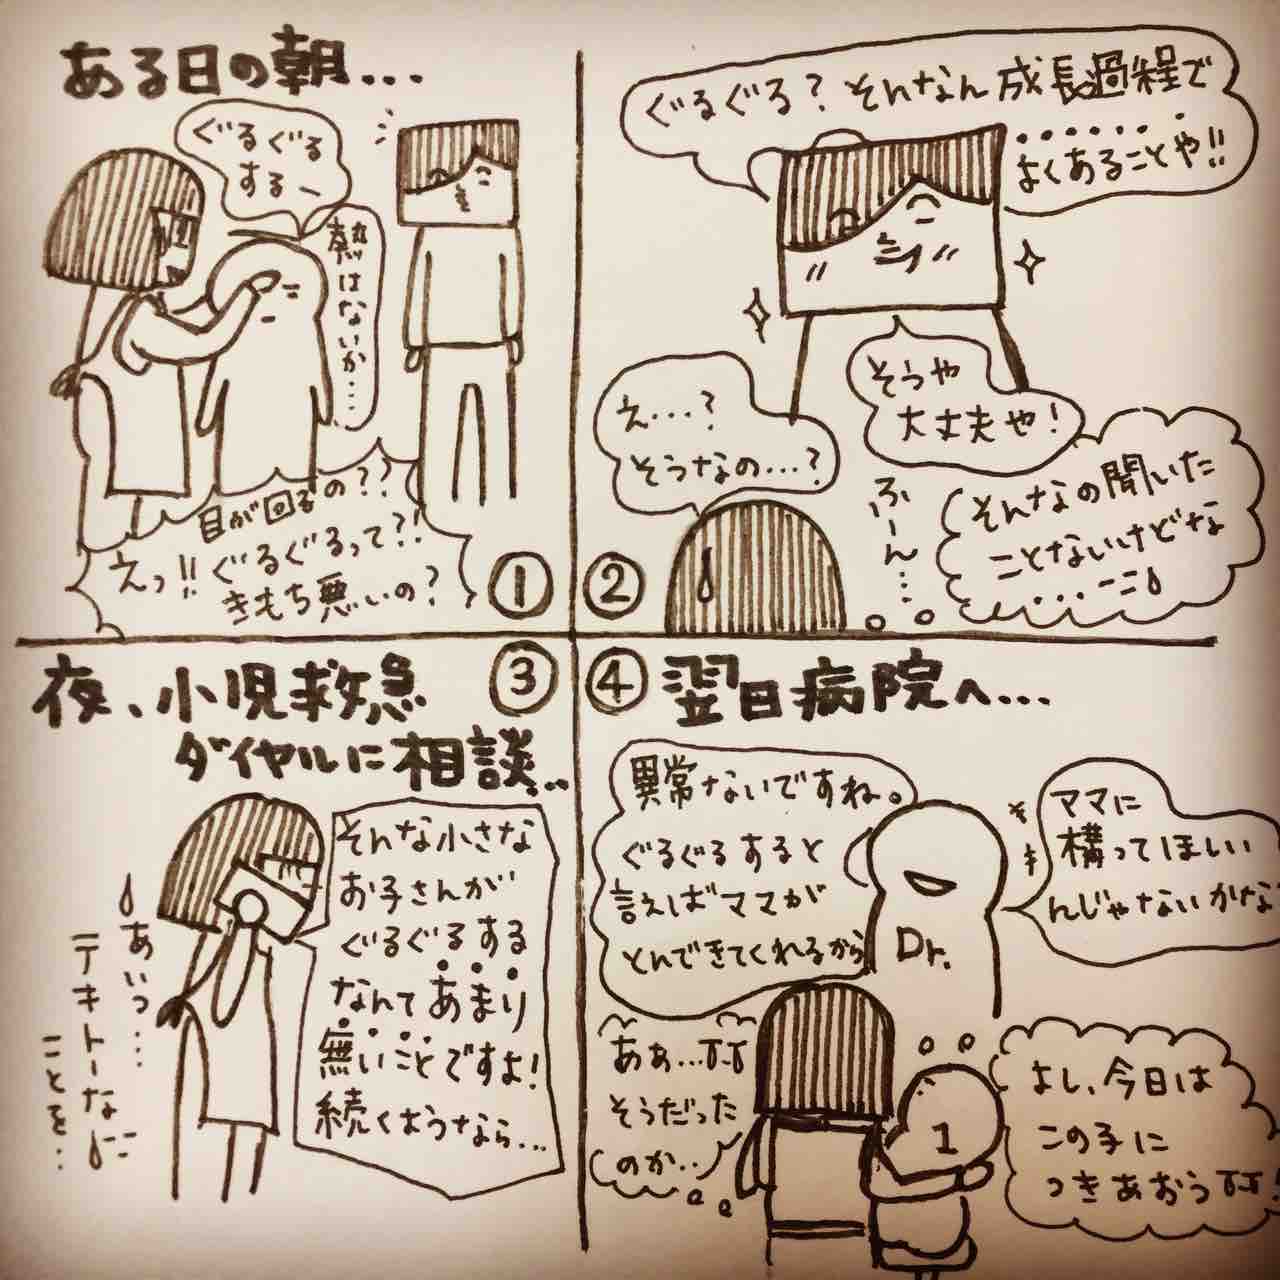 ある日の朝...
ぐるぐる
するー
熱はないか...
目が回るの??
えっ!!ぐるぐるって?!
きもち悪いの?
①
②
ぐるぐる?そんなん成長過程で
よくあることや!!
そうや
大丈夫や!
え...?
そうなの...?
ふーん...
そんなの聞いた
ことないけどな
...
③
夜、小児救急
ダイヤルに相談...
そんな小さな
お子さんが
ぐるぐるする
なんてあまり
無いことですよ!
続くようなら...
あいつ...
テキトーな
ことを..
④
翌日病院へ...
異常ないですね。
ぐるぐるすると
言えばママが
とんできてくれるから
ママに
構ってほしい
んじゃないかな
Dr.
ああ...TT
そうだった
のか..
1
よし、今日は
この子に
つきあおうTT!